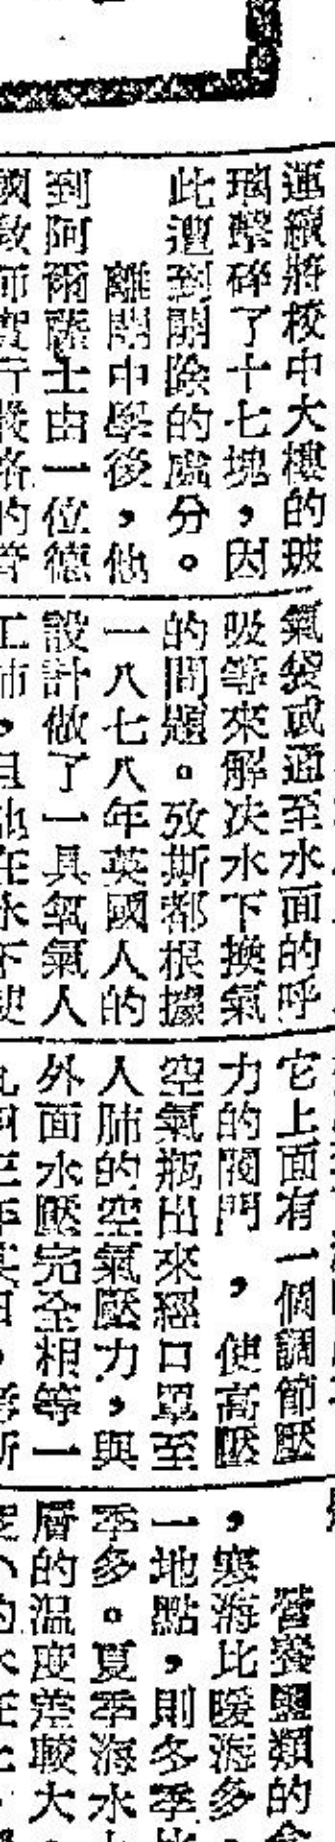 連續將校中大樓的玻
璃擊碎了十七塊，因
此遭到開除的處分。
離開中學後，他
到阿爾薩士由一位德
氣袋或通至水面的呼
吸等來解决水下換氣
的問題。攷斯都根據
一八七八年英國人的
設計做了一具氧氣人
它上面有一個調節壓
力的閥門，使高壓
空氣瓶出來經口罩至
人肺的空氣壓力，與
外面水壓完全相等一
營養鹽類的
，寒海比暖海多，
一地點，則冬季比
季多。夏季海水
層的温度差較大，